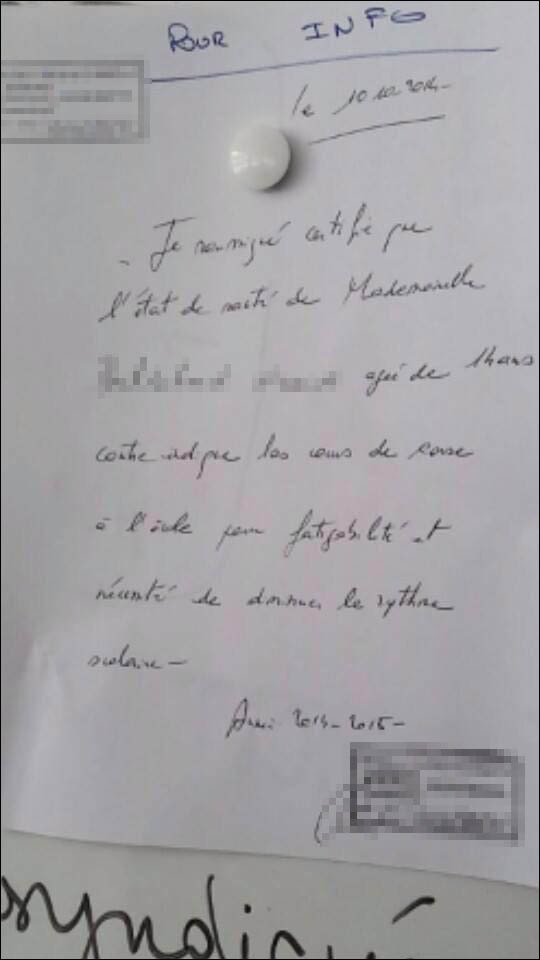 POUR INFO
le 10.10.2014-
- Je soussigné certifie que
l'état de santé de Mademoiselle
agée de 14 ans
contre indique les cours de corse
à l'école pour fatigabilité et
nécessité de diminuer le rythme
scolaire -
Année 2014-2015-
syndiqué